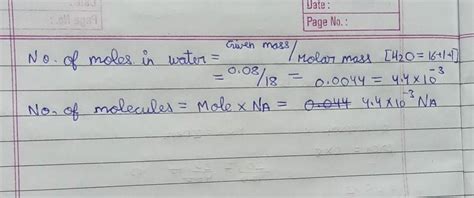 Date :
Page No. :
No. of moles in water = Given mass / Molar mass [H2O = 16+1+1]
= 0.08/18 = 0.0044 = 4.4×10⁻³
No. of molecules = Mole × NA = 0.044 4.4×10⁻³ NA